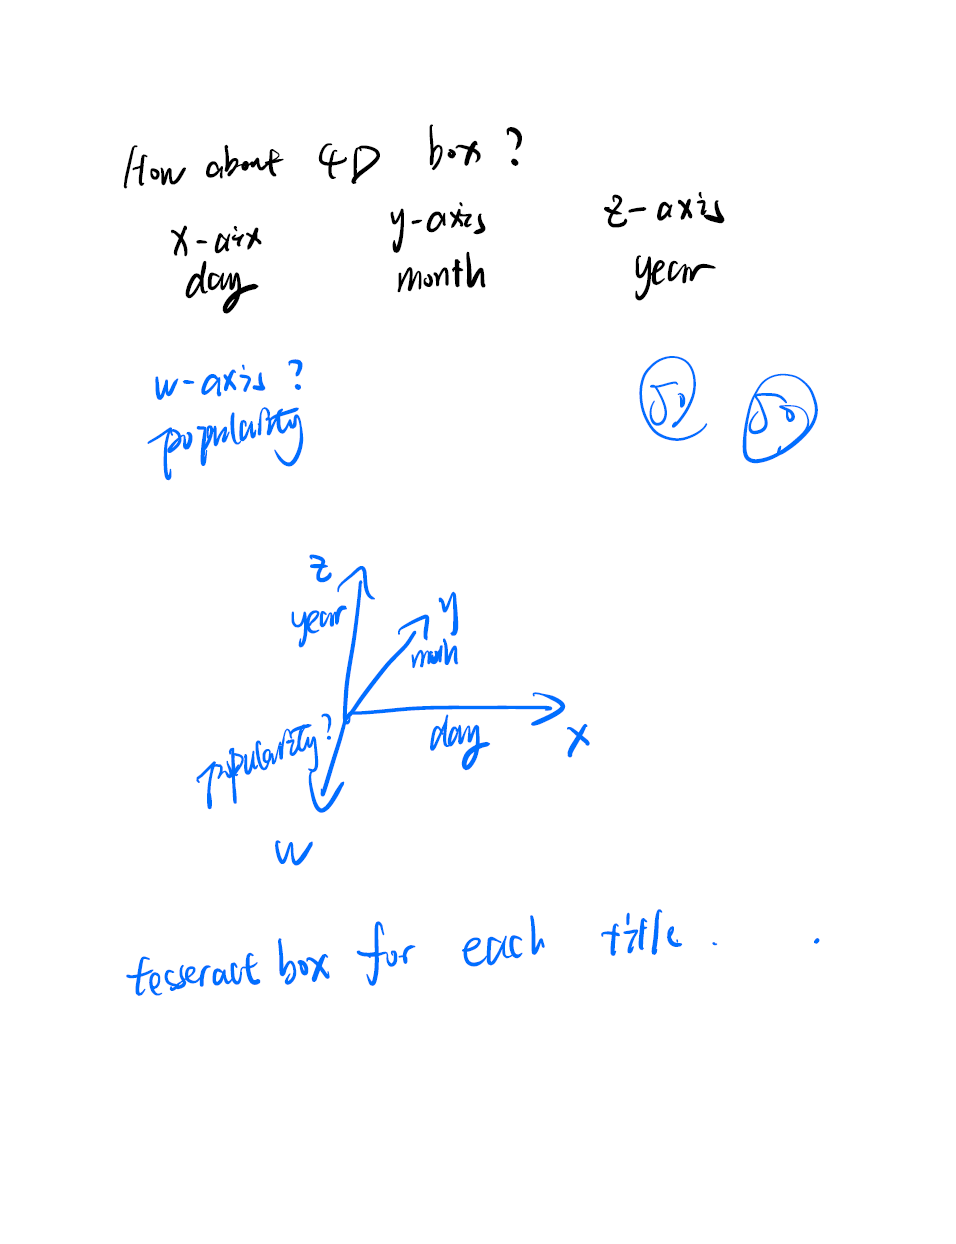 How about 4D box ?
x-aix y-axis z-axis
day month year
w-axis ?
popularity
50 50
z
year
y
month
popularity?
day
x
w
tesseract box for each title .